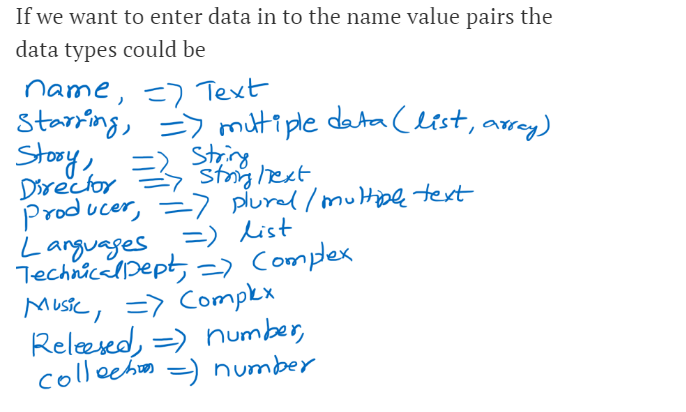 If we want to enter data in to the name value pairs the
data types could be
name, => Text
Starring, => mutiple data (list, array)
Story, => String
Director => String/text
Producer, => plural/multiple text
Languages => list
TechnicalDept, => Complex
Music, => Complex
Released, => number,
collection => number